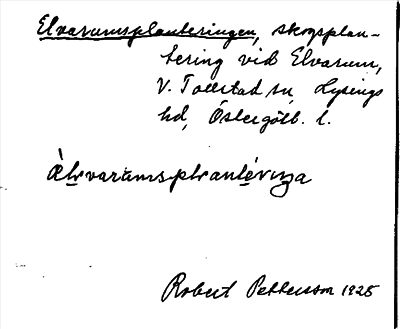 Elvarumsplanteringen, skogsplan-
tering vid Elvarum,
V. Tollstad sn, Lysings
hd, Östergötl. l.
Robert Pettersson 1925